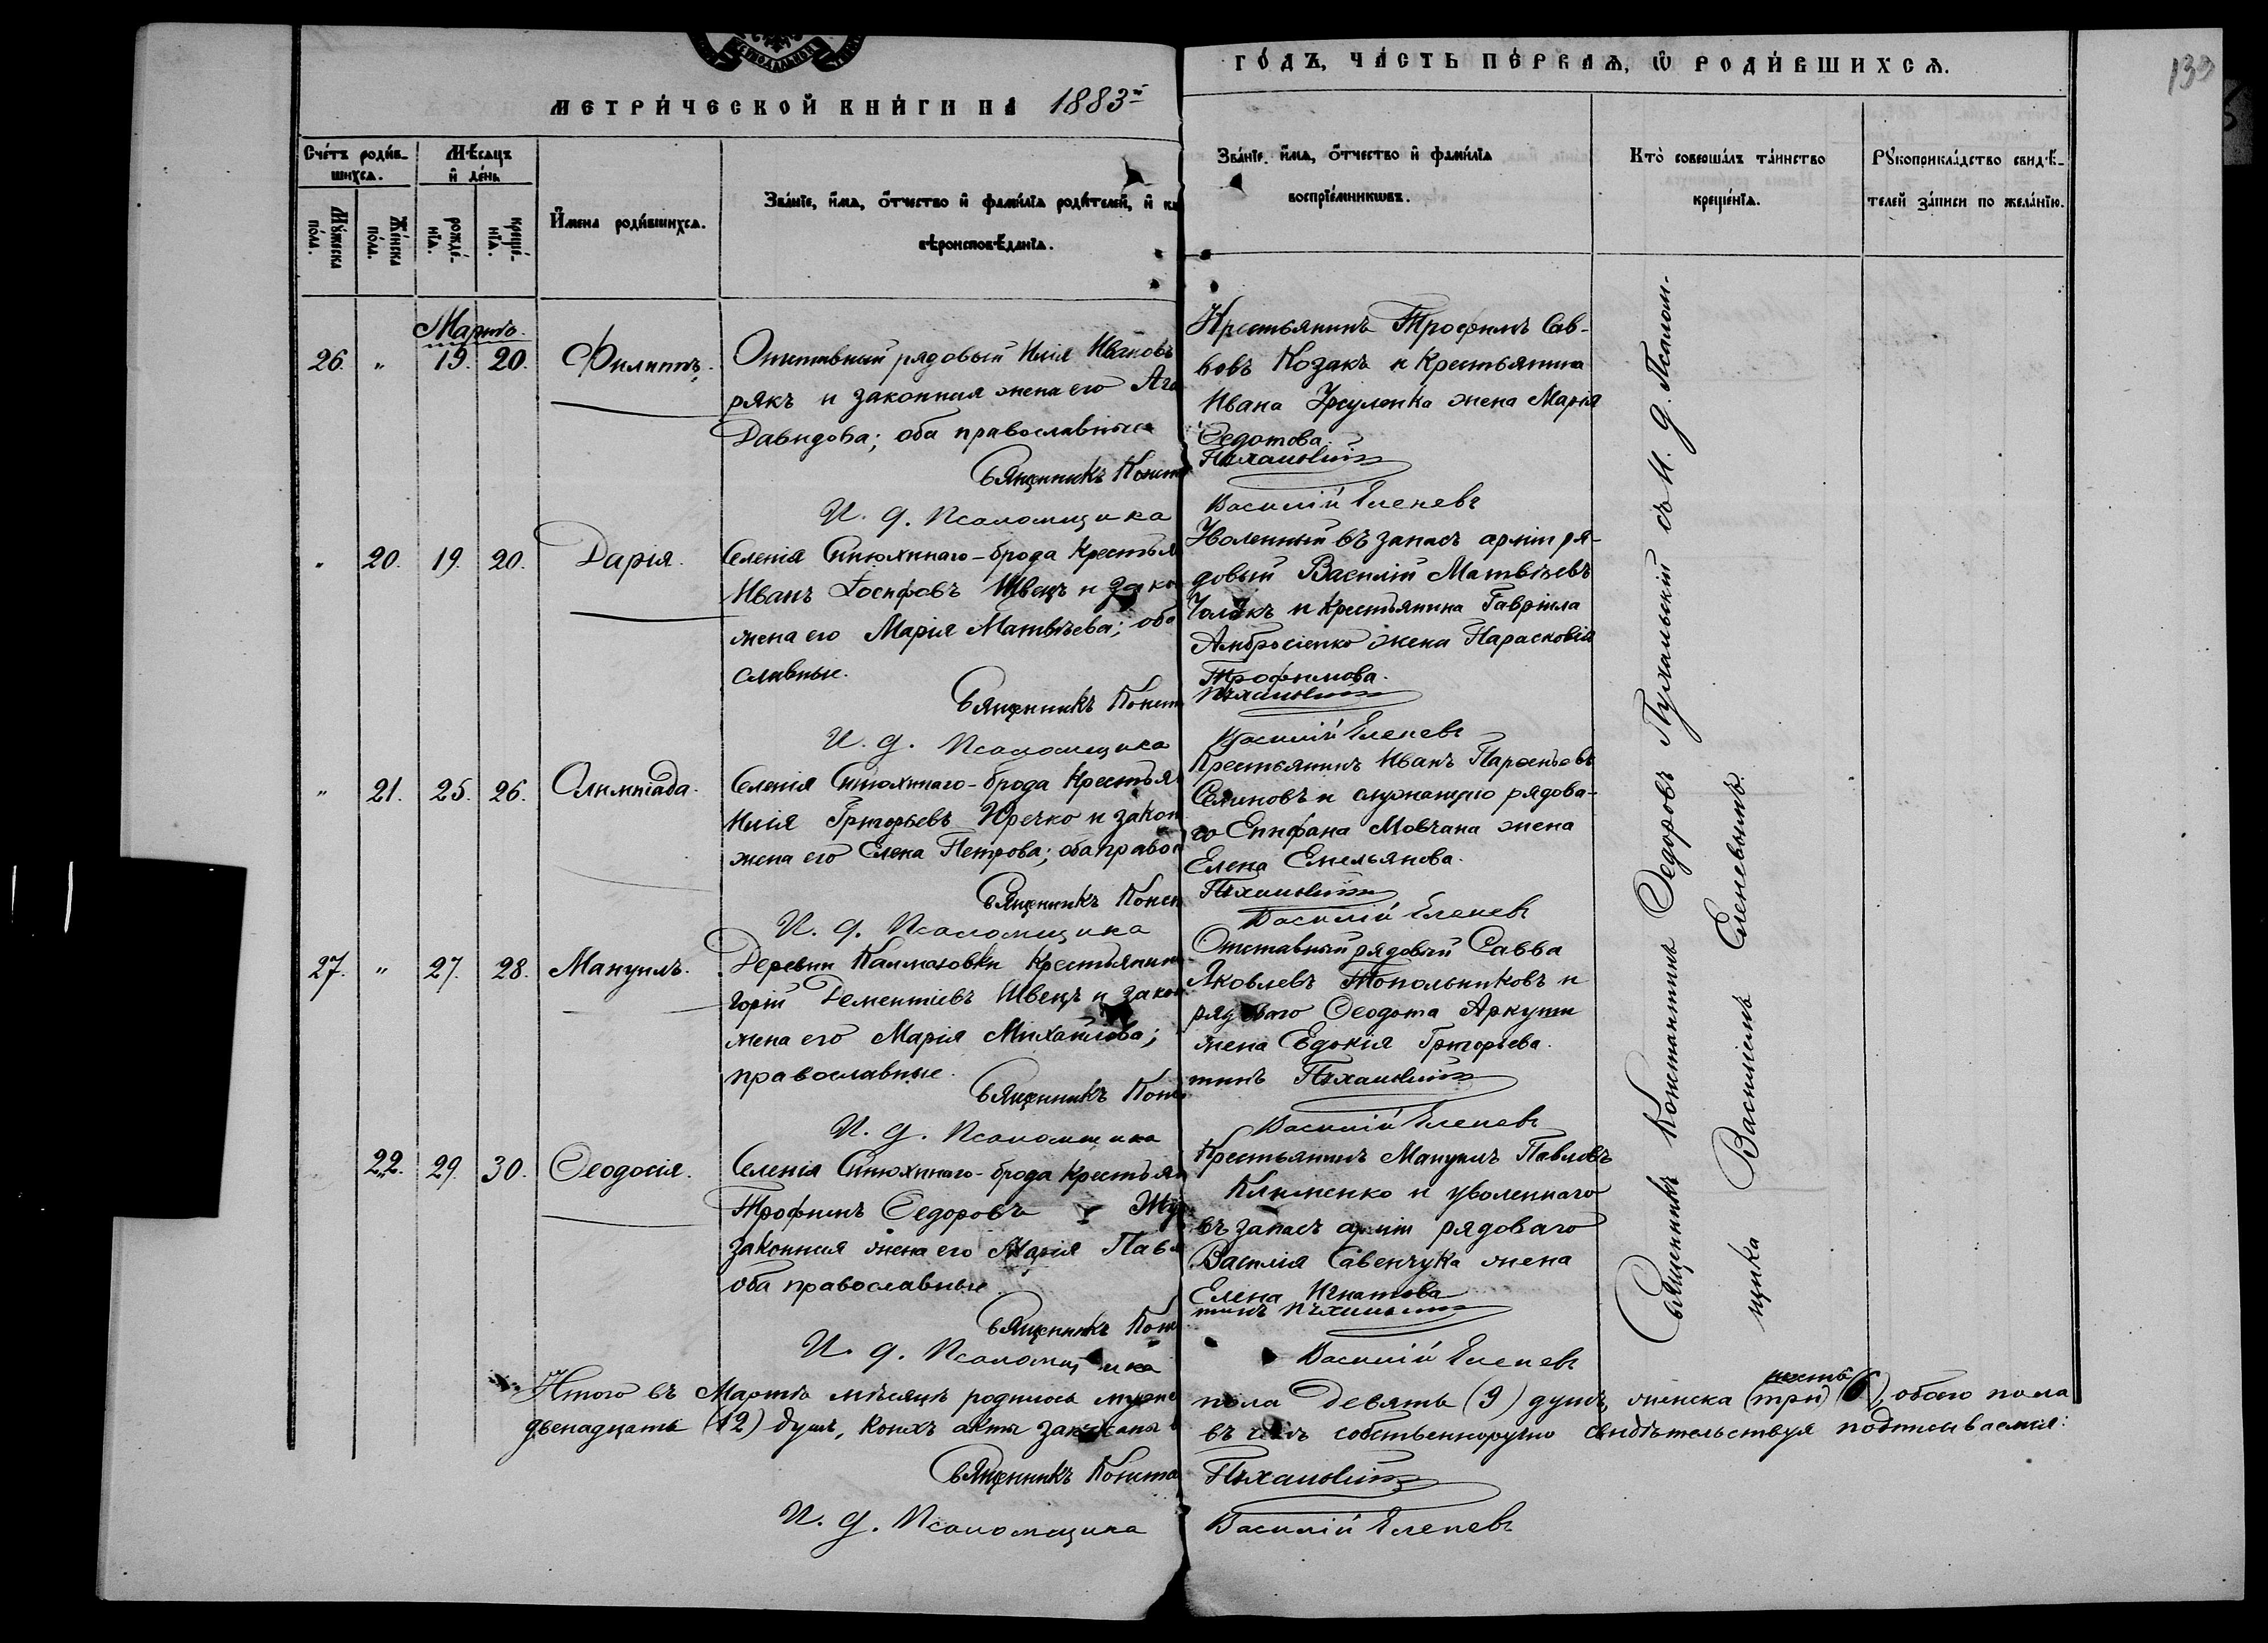 МЕТРИ́ЧЕСКОЙ КНИ́ГИ НА 1883й
ГО́ДЪ, ЧА́СТЬ ПЕ́РВАѦ, Ѽ РОДИ́ВШИХСѦ.
Сче́тъ роди́в-
шихсѧ.
Мѣ́сѧцъ
и҆ де́нь
Мꙋ́жеска
по́ла.
Же́нска
по́ла.
рожде́-
нїѧ.
креще́-
нїѧ.
И҆мена роди́вшихсѧ.
Зва́нїе, и҆́мѧ, ѻ҆́тчество и҆ фами́лїѧ роди́телей, и҆
вѣроисповѣ́данїѧ.
Зва́нїе, и҆́мѧ, ѻ҆́тчество и҆ фами́лїѧ
воспрїе́мникѡвъ.
Кто̀ соверша́лъ та́инство
креще́нїѧ.
Рꙋкоприкла́дство свидѣ́-
телей за́писи по жела́нїю.
Мартъ.
26. " 19. 20. Филиппъ.
Отставный рядовый Илія Ивановъ
рякъ и законная жена его Ага
Давидова; оба православные
Священникъ Конст
И. д. Псаломщика
Крестьянинъ Трофимъ Сав-
вовъ Козакъ и крестьянина
Ивана Урсуленка жена Марія
Ѳедотова.
Пѣхановскій
Василій Еленевъ
" 20. 19. 20. Дарія.
Селенія Синюхинаго-брода крестьян
Иванъ Іосифовъ Швецъ и закон
жена его Марія Матвѣева; оба
славные.
Священникъ Конст
И. д. Псаломщика
Уволенный въ запасъ арміи ря-
довый Василій Матвѣевъ
и крестьянина Гавріила
Амбросіенко жена Парасковія
Трофимова.
Василій Еленевъ
" 21. 25. 26. Олимпіада.
Селенія Синюхинаго-брода крестьян
Илія Григорьевъ Юречко и закон
жена его Елена Петрова; оба правос
Священникъ Конст
И. д. Псаломщика
Крестьянинъ Иванъ Парѳеньевъ
Семиновъ и служащаго рядова-
го Епифана Мовчана жена
Елена Емельянова.
Василій Еленевъ
27. " 27. 28. Мануилъ.
Деревни Калмазовки крестьянинъ
горій Дементіевъ Швецъ и закон
жена его Марія Михайлова;
православные.
Священникъ Конст
И. д. Псаломщика
Отставный рядовый Савва
Яковлевъ Топольниковъ и
рядоваго Ѳеодота Аркуши
жена Евдокія Григорьева.
тинъ
Василій Еленевъ
22. 29. 30. Ѳеодосія.
Селенія Синюхинаго-брода крестьян
Трофимъ Ѳедоровъ
законная жена его Марія Павл
оба православные
Священникъ Конст
И. д. Псаломщика
Крестьянинъ Мануилъ Павловъ
Клименко и уволеннаго
въ запасъ арміи рядоваго
Василія Савенчука жена
Елена Игнатова
тинъ
Василій Еленевъ
Священникъ Константинъ Ѳедоровъ съ И. д. Псалом-
щика Василіемъ Еленевымъ.
Итого въ Мартѣ мѣсяцѣ родилось мужеск
пола девять (9) душъ, женска (три) шесть (6), обоего пола
двенадцать (12) душъ, коихъ акты записаны
въ чемъ собственноручно свидѣтельствуя подписываемся:
Священникъ Конста
И. д. Псаломщика
Василій Еленевъ